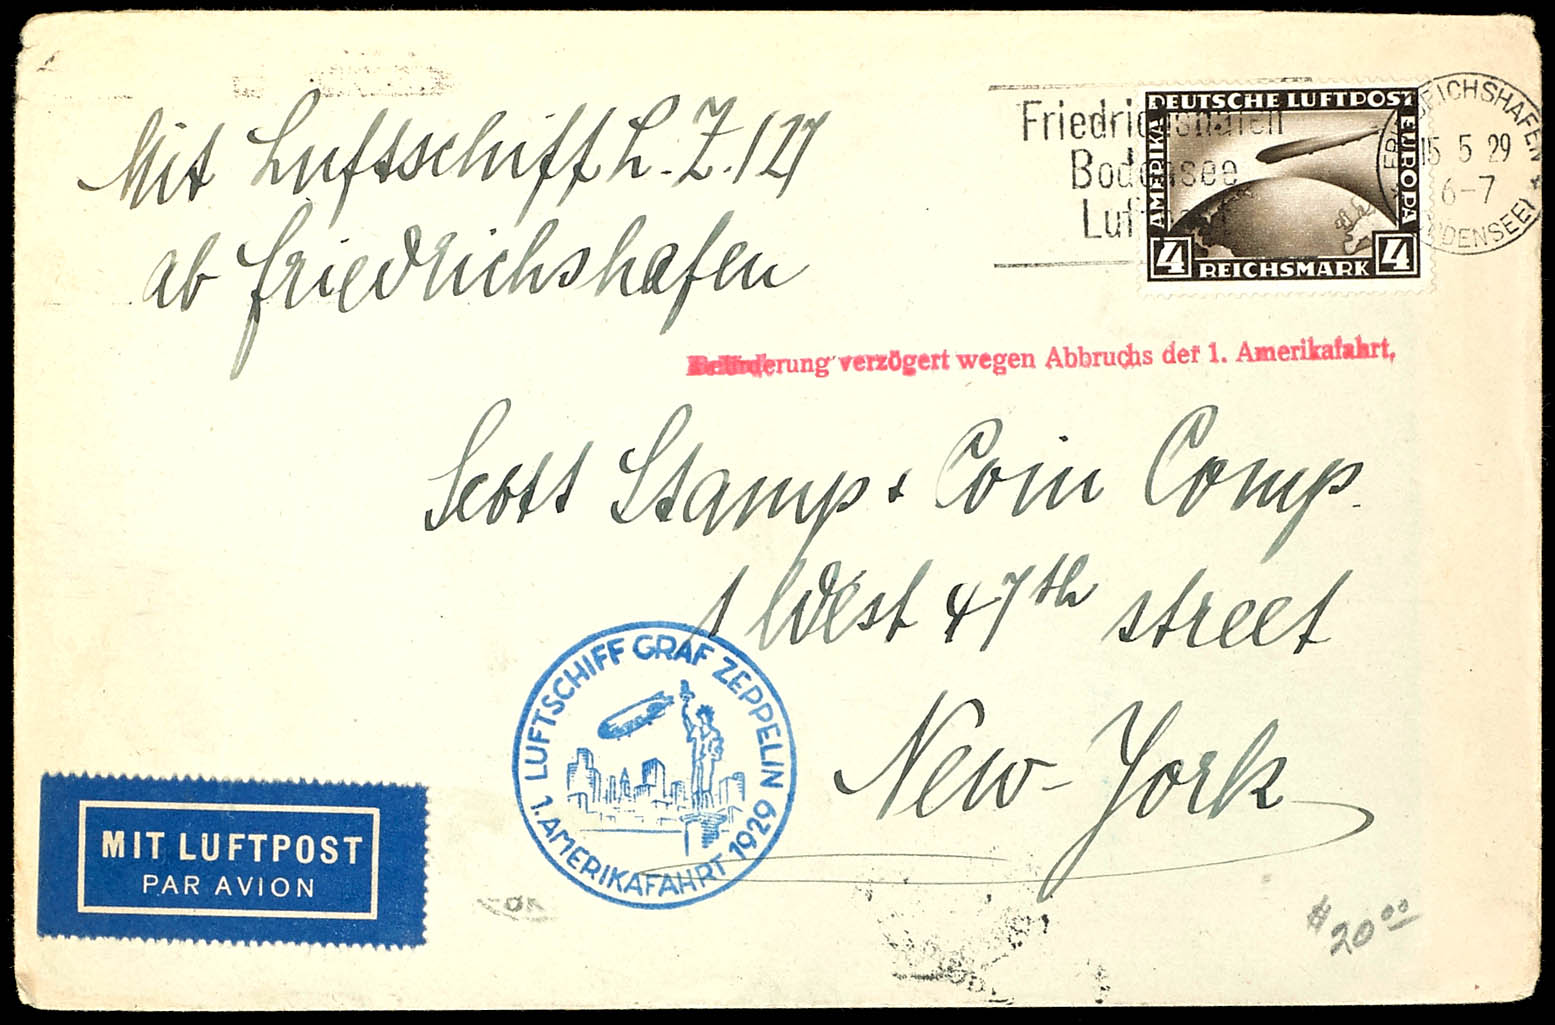 Mit Luftschiff L.Z.127
ab Friedrichshafen
Friedrichshafen
Bodensee
DEUTSCHE LUFTPOST
AMERIKA
EUROPA
4 REICHSMARK 4
FRIEDRICHSHAFEN
15 5 29
6-7
(BODENSEE)
Beförderung verzögert wegen Abbruchs der 1. Amerikafahrt,
Scott Stamp + Coin Comp.
1 West 47th street
New-York
LUFTSCHIFF GRAF ZEPPELIN
1. AMERIKAFAHRT 1929
MIT LUFTPOST
PAR AVION
$20.00